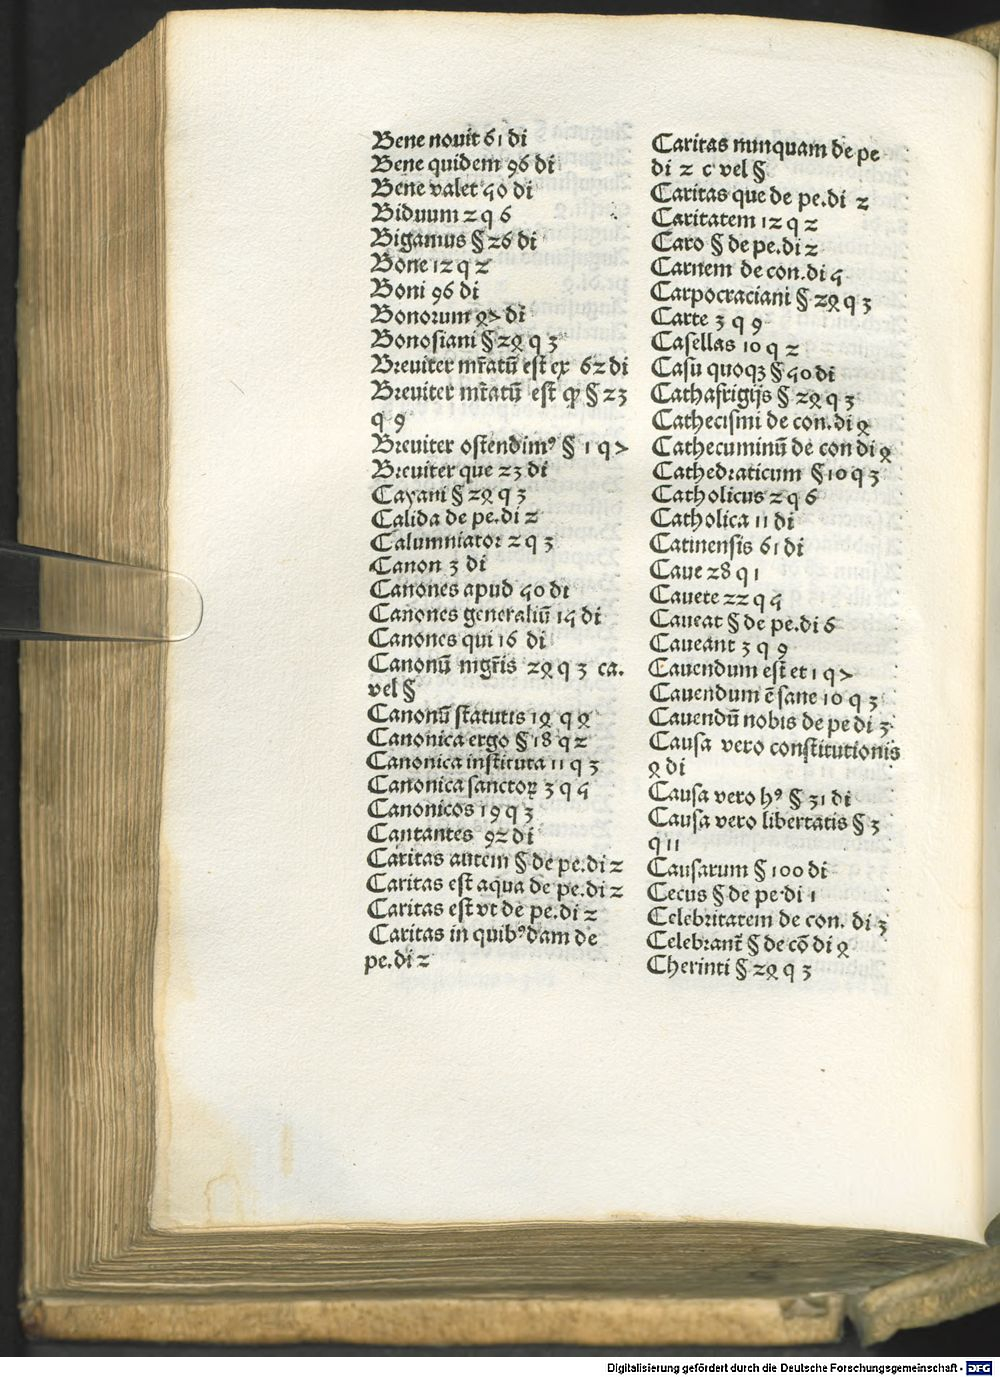 Bene nouit 61 di
Bene quidem 96 di
Bene valet 40 di
Biduum 2 q 6
Bigamus § 26 di
Bone 12 q 2
Boni 96 di
Bonorum 87 di
Bonosiani § 28 q 3
Breuiter mr̄atū est ex 62 di
Breuiter mr̄atū est ꝙ § 23
q 9
Breuiter ostendimꝰ § 1 q 7
Breuiter que 23 di
Cayani § 28 q 3
Calida de pe.di 2
Calumniator 2 q 3
Canon 3 di
Canones apud 40 di
Canones generaliū 14 di
Canones qui 16 di
Canonū 28 q 3 ca.
vel §
Canonū statutis 18 q 8
Canonica ergo § 18 q 2
Canonica instituta 11 q 3
Canonica sanctoꝝ 3 q 4
Canonicos 19 q 3
Cantantes 92 di
Caritas autem § de pe.di 2
Caritas est aqua de pe.di 2
Caritas est vt de pe.di 2
Caritas in quibꝰdam de
pe.di 2
Caritas nunquam de pe
di 2 c vel §
Caritas que de pe.di 2
Caritatem 12 q 2
Caro § de pe.di 2
Carnem de con.di 4
Carpocraciani § 28 q 3
Carte 3 q 9
Casellas 10 q 2
Casu quoqꝫ § 40 di
Cathafrigijs § 28 q 3
Cathecismi de con.di 8
Cathecuminū de con di 8
Cathedraticum § 10 q 3
Catholicus 2 q 6
Catholica 11 di
Catinensis 61 di
Caue 28 q 1
Cauete 22 q 4
Caueat § de pe.di 6
Caueant 3 q 9
Cauendum est et 1 q 7
Cauendum ē sane 10 q 3
Cauendū nobis de pe di 3
Causa vero constitutionis
8 di
Causa vero hꝰ § 31 di
Causa vero libertatis § 3
q 11
Causarum § 100 di
Cecus § de pe di 1
Celebritatem de con. di 3
Celebrant̄ § de cō di 8
Cherinti § 28 q 3
Digitalisierung gefördert durch die Deutsche Forschungsgemeinschaft - DFG